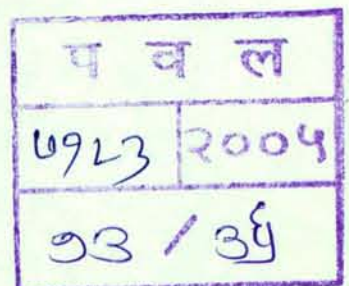 प व ल
७१८३ २००५
१३ / ३६